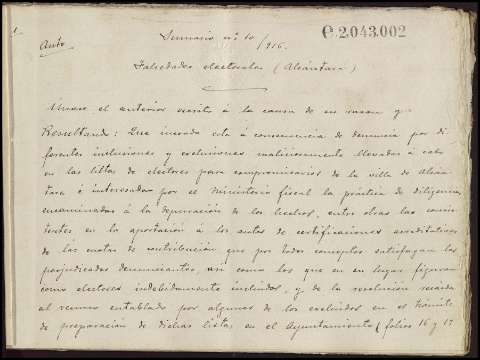 Sumario nº 10/916.
C 2.043.002
Auto
Falsedades electorales (Alcántara)
Únase el anterior escrito á la causa de su razon y
Resultando: Que incoada esta á consecuencia de denuncia por di-
ferentes inclusiones y exclusiones maliciosamente llevadas á cabo
en las listas de electores para compromisarios de la villa de Alcán-
tara é interesadas por el Ministerio fiscal la práctica de diligencias
encaminadas á la depuración de los hechos, entre otras las consis-
tentes en la aportación á los autos de certificaciones acreditativas
de las cuotas de contribución que por todos conceptos satisfagan los
perjudicados denunciantes, asi como los que en su lugar figuran
como electores indebidamente incluidos, y de la resolución recaida
al recurso entablado por algunos de los excluidos en el trámite
de preparación de dichas listas en el Ayuntamiento (folios 16 y 17